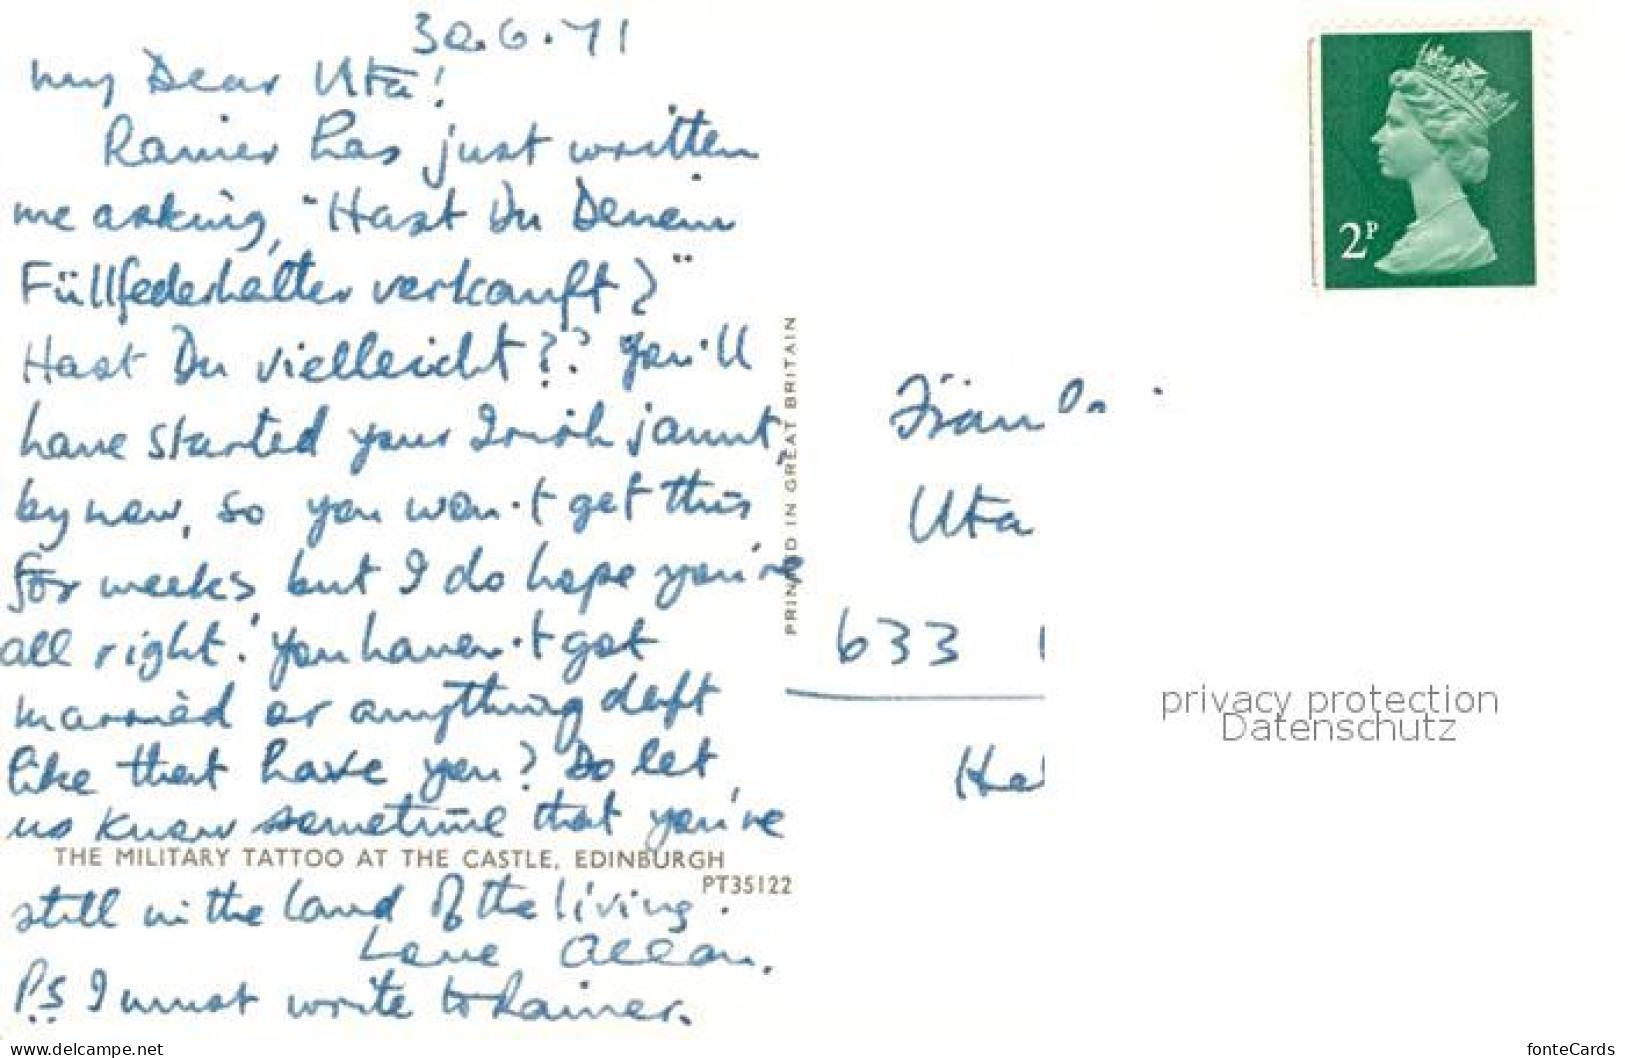 30.6.71
My Dear Uta!
Rainer has just written
me asking, "Hast Du Deinen
Füllfederhalter verkauft?"
Hast Du vielleicht?? You'll
have started your Irish jaunt,
by now, so you won't get this
for weeks but I do hope you're
all right. You haven't got
married or anything daft
like that have you? Do let
us know sometime that you're
THE MILITARY TATTOO AT THE CASTLE, EDINBURGH
PT35122
still in the land of the living.
Love Allan.
P.S I must write to Rainer.
PRINTED IN GREAT BRITAIN
2P
Uta
633
privacy protection
Datenschutz
www.delcampe.net
fonteCards